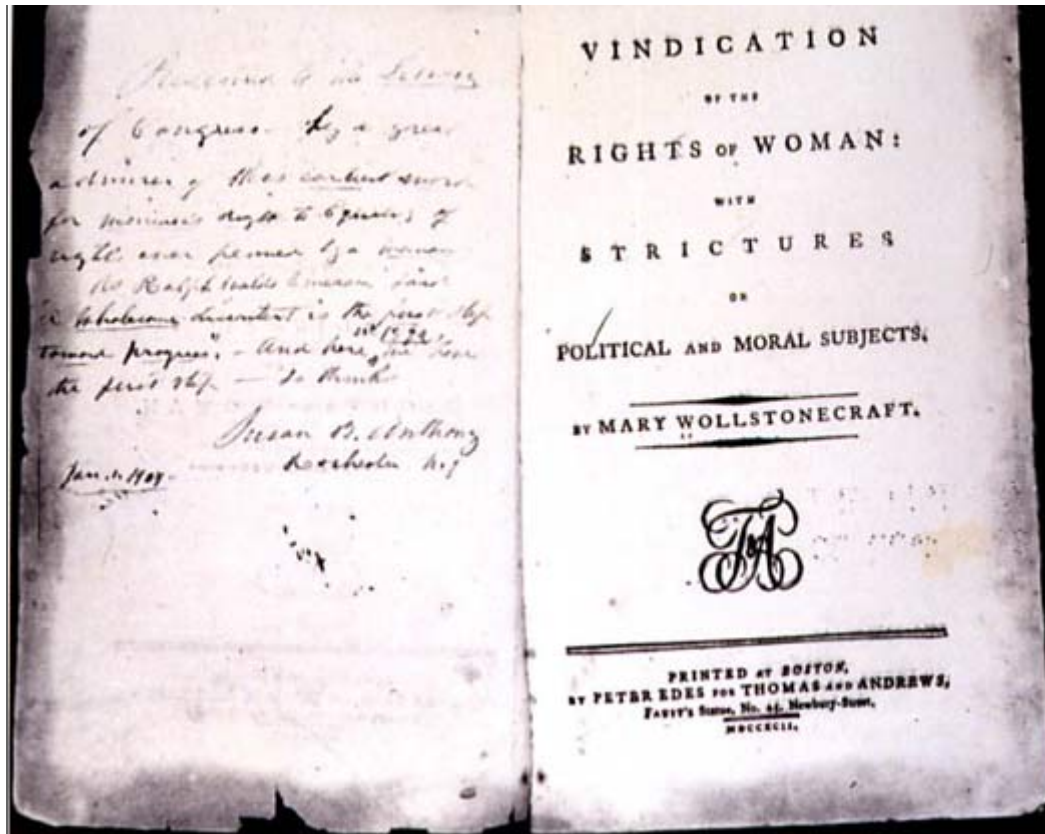 Presented to the Library
of Congress. by a great
admirer of this earliest
for woman's right to Equality of
right ever penned by a woman
As Ralph Waldo Emerson said
"A Wholesome discontent is the first step
toward progress". - And here, in 1792, we have
the first step - So thinks
Susan B. Anthony
Rochester N.Y
Jan. 1. 1904-
VINDICATION
OF THE
RIGHTS OF WOMAN:
WITH
STRICTURES
ON
POLITICAL AND MORAL SUBJECTS.
BY MARY WOLLSTONECRAFT.
T&A
PRINTED AT BOSTON,
BY PETER EDES FOR THOMAS AND ANDREWS,
FAUST'S Statue, No. 45, Newbury-Street,
MDCCXCII.